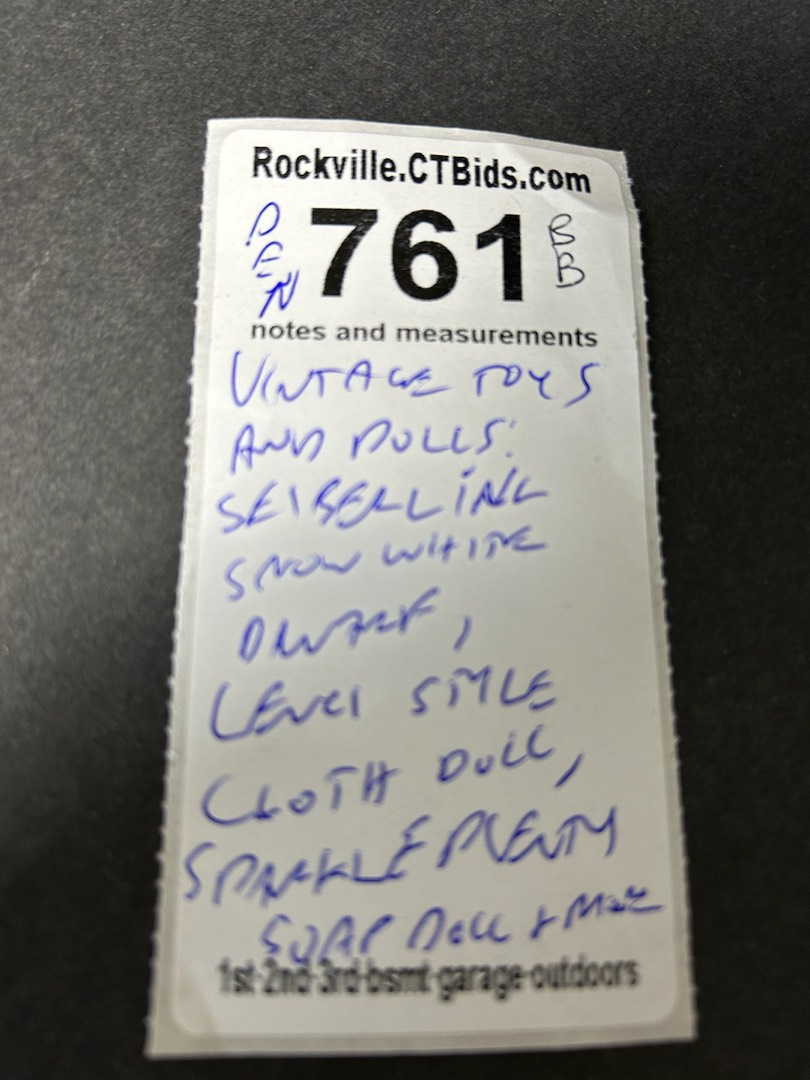 Rockville.CTBids.com
DEN 761 BB
notes and measurements
VINTAGE TOYS
AND DOLLS:
SEIBERLING
SNOW WHITE
DWARF,
LENCI STYLE
CLOTH DOLL,
SPARKLE PLENTY
SOAP DOLL + MORE
1st-2nd-3rd-bsmt-garage-outdoors